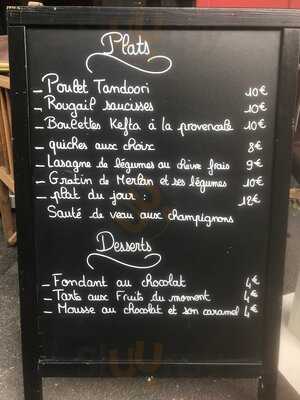 Plats
_ Poulet Tandoori 10€
_ Rougail saucisses 10€
_ Boulettes Kefta à la provençale 10€
_ quiches aux choix 8€
_ Lasagne de légumes au chèvre frais 9€
_ Gratin de Merlan et ses légumes 10€
_ plat du jour : 12€
Sauté de veau aux champignons
Desserts
_ Fondant au chocolat 4€
_ Tarte aux Fruits du moment 4€
_ Mousse au chocolat et son caramel 4€